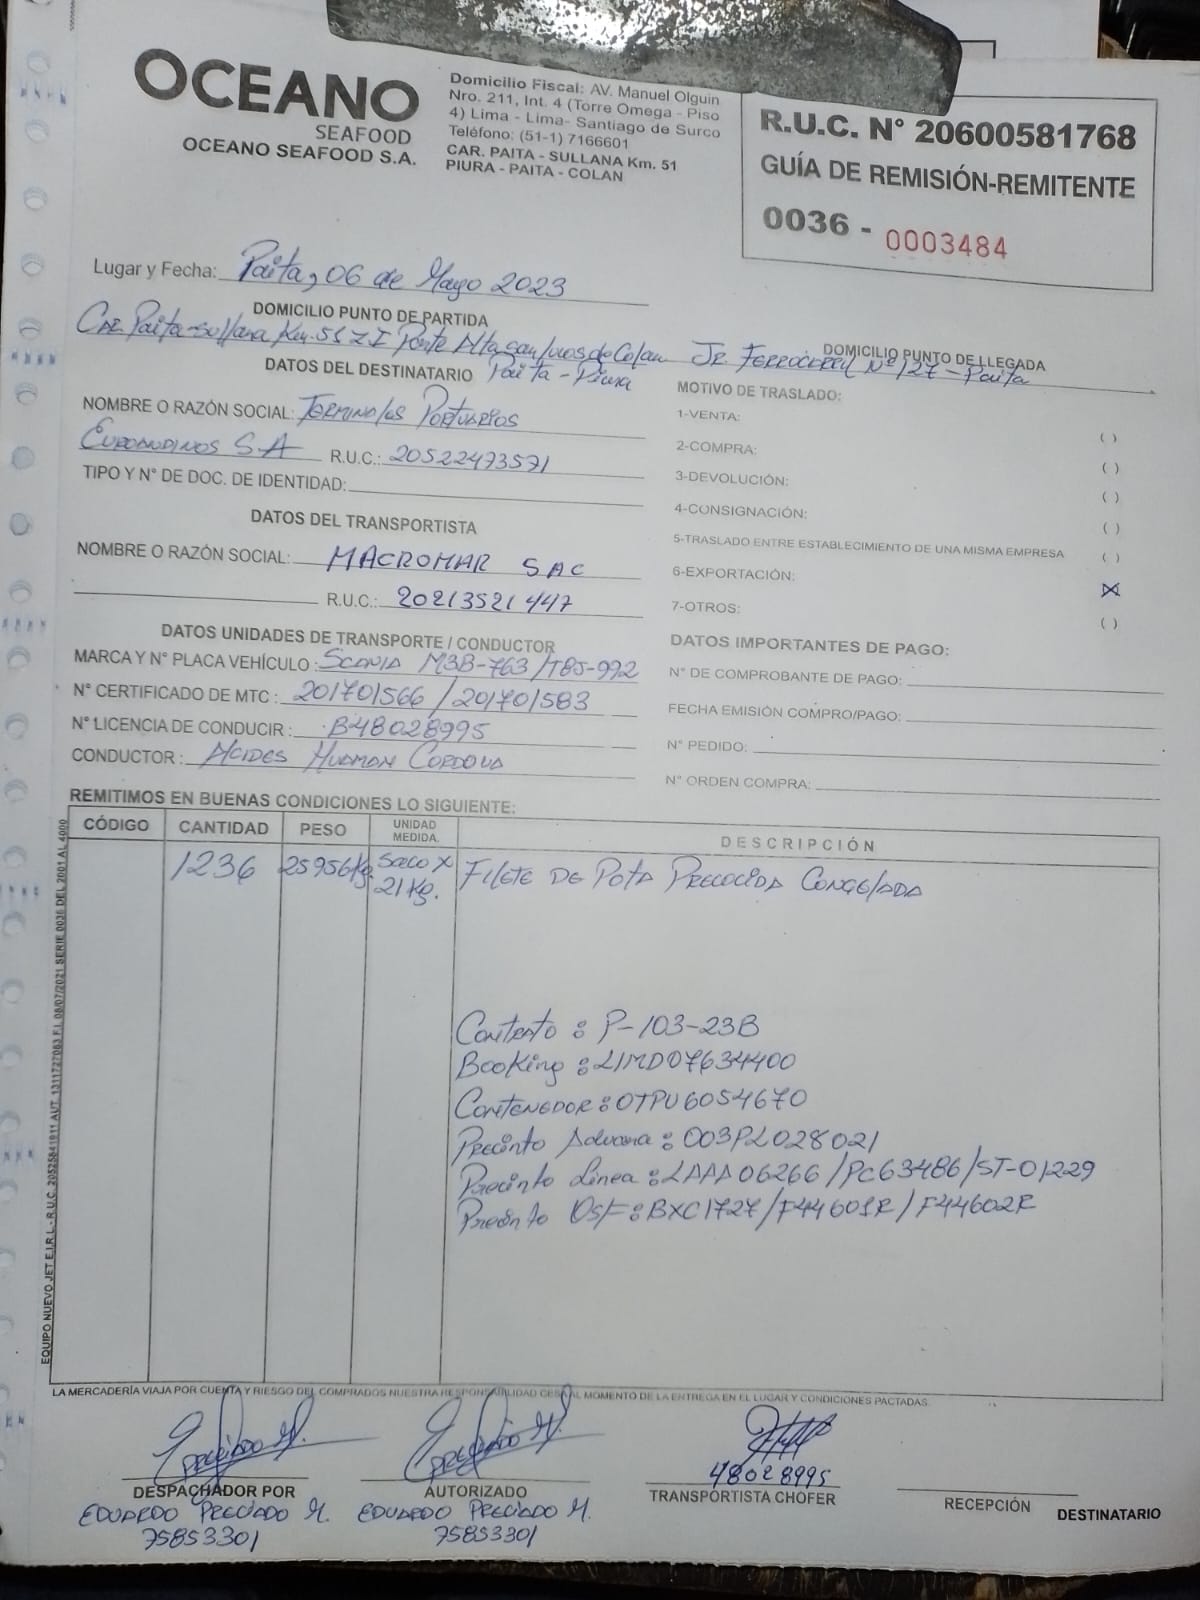 OCEANO
SEAFOOD
OCEANO SEAFOOD S.A.
Domicilio Fiscal: AV. Manuel Olguin
Nro. 211, Int. 4 (Torre Omega - Piso
4) Lima - Lima- Santiago de Surco
Teléfono: (51-1) 7166601
CAR. PAITA - SULLANA Km. 51
PIURA - PAITA - COLAN
R.U.C. N° 20600581768
GUÍA DE REMISIÓN-REMITENTE
0036 - 0003484
Lugar y Fecha: Paita, 06 de Mayo 2023
DOMICILIO PUNTO DE PARTIDA
Car. Paita-Sullana Km. 51 Z I Parte Alta San Lucas de Colan
Paita - Piura
DOMICILIO PUNTO DE LLEGADA
Jr. Ferrocarril N° 127 - Paita
DATOS DEL DESTINATARIO
NOMBRE O RAZÓN SOCIAL: Terminales Portuarios
Euroandinos S A R.U.C.: 20522473571
TIPO Y N° DE DOC. DE IDENTIDAD:
DATOS DEL TRANSPORTISTA
NOMBRE O RAZÓN SOCIAL: MACROMAR SAC
R.U.C.: 20213521447
DATOS UNIDADES DE TRANSPORTE / CONDUCTOR
MARCA Y N° PLACA VEHÍCULO: Scania M3B-763/TBJ-992
N° CERTIFICADO DE MTC: 201701566 / 201701583
N° LICENCIA DE CONDUCIR: B48028995
CONDUCTOR: Alcides Huaman Cordova
MOTIVO DE TRASLADO:
1-VENTA: ( )
2-COMPRA: ( )
3-DEVOLUCIÓN: ( )
4-CONSIGNACIÓN: ( )
5-TRASLADO ENTRE ESTABLECIMIENTO DE UNA MISMA EMPRESA ( )
6-EXPORTACIÓN: (X)
7-OTROS: ( )
DATOS IMPORTANTES DE PAGO:
N° DE COMPROBANTE DE PAGO:
FECHA EMISIÓN COMPRO/PAGO:
N° PEDIDO:
N° ORDEN COMPRA:
REMITIMOS EN BUENAS CONDICIONES LO SIGUIENTE:
CÓDIGO CANTIDAD PESO UNIDAD MEDIDA. DESCRIPCIÓN
1236 25956Kg. Saco x 21Kg. Filete de Pota Precocida Congelada
Contrato: P-103-23B
Booking: LIMD07634400
Contenedor: OTPU6054670
Precinto Aduana: 003PL028021
Precinto Linea: LAAA06266/PC63486/ST-01229
Precinto Osf: BXC1727/F44601R/F44602R
EQUIPO NUEVO JET E.I.R.L - R.U.C. 20525841911 AUT. 1311727083 F.I. 08/07/2021 SERIE 0036 DEL 2001 AL 4000
LA MERCADERÍA VIAJA POR CUENTA Y RIESGO DEL COMPRADOS NUESTRA RESPONSABILIDAD CESA AL MOMENTO DE LA ENTREGA EN EL LUGAR Y CONDICIONES PACTADAS.
DESPACHADOR POR
EDUARDO PRECIADO M.
75853301
AUTORIZADO
EDUARDO PRECIADO M.
75853301
48028995
TRANSPORTISTA CHOFER
RECEPCIÓN
DESTINATARIO